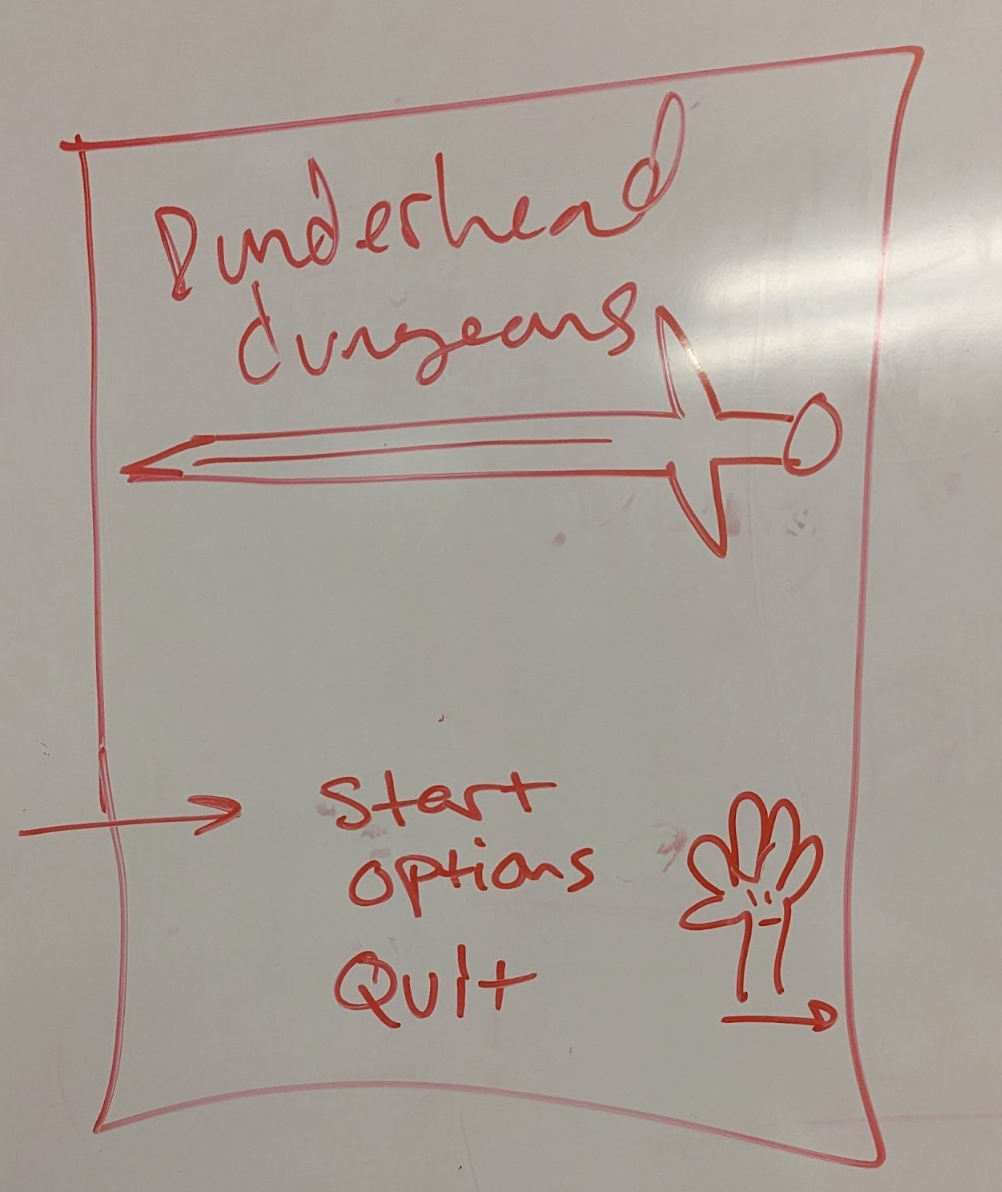 Dunderhead
dungeons
Start
options
Quit